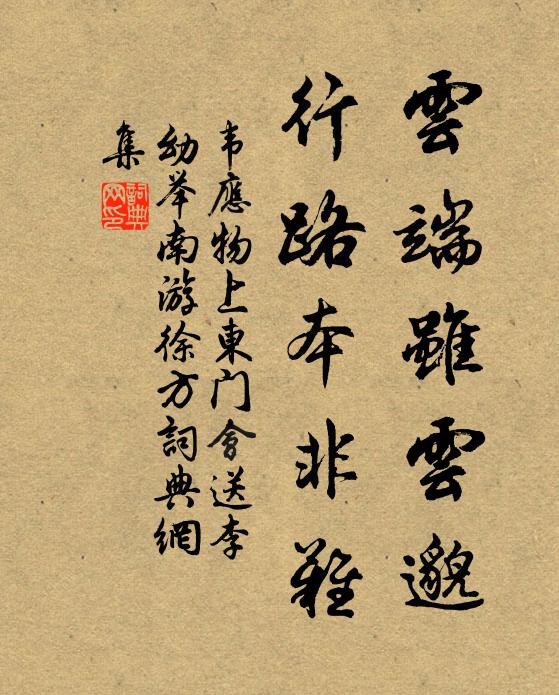 雲端雖雲邈
行路本非難
韦應物上東门會送李
幼举南游徐方詞典網
集
詞典
网印